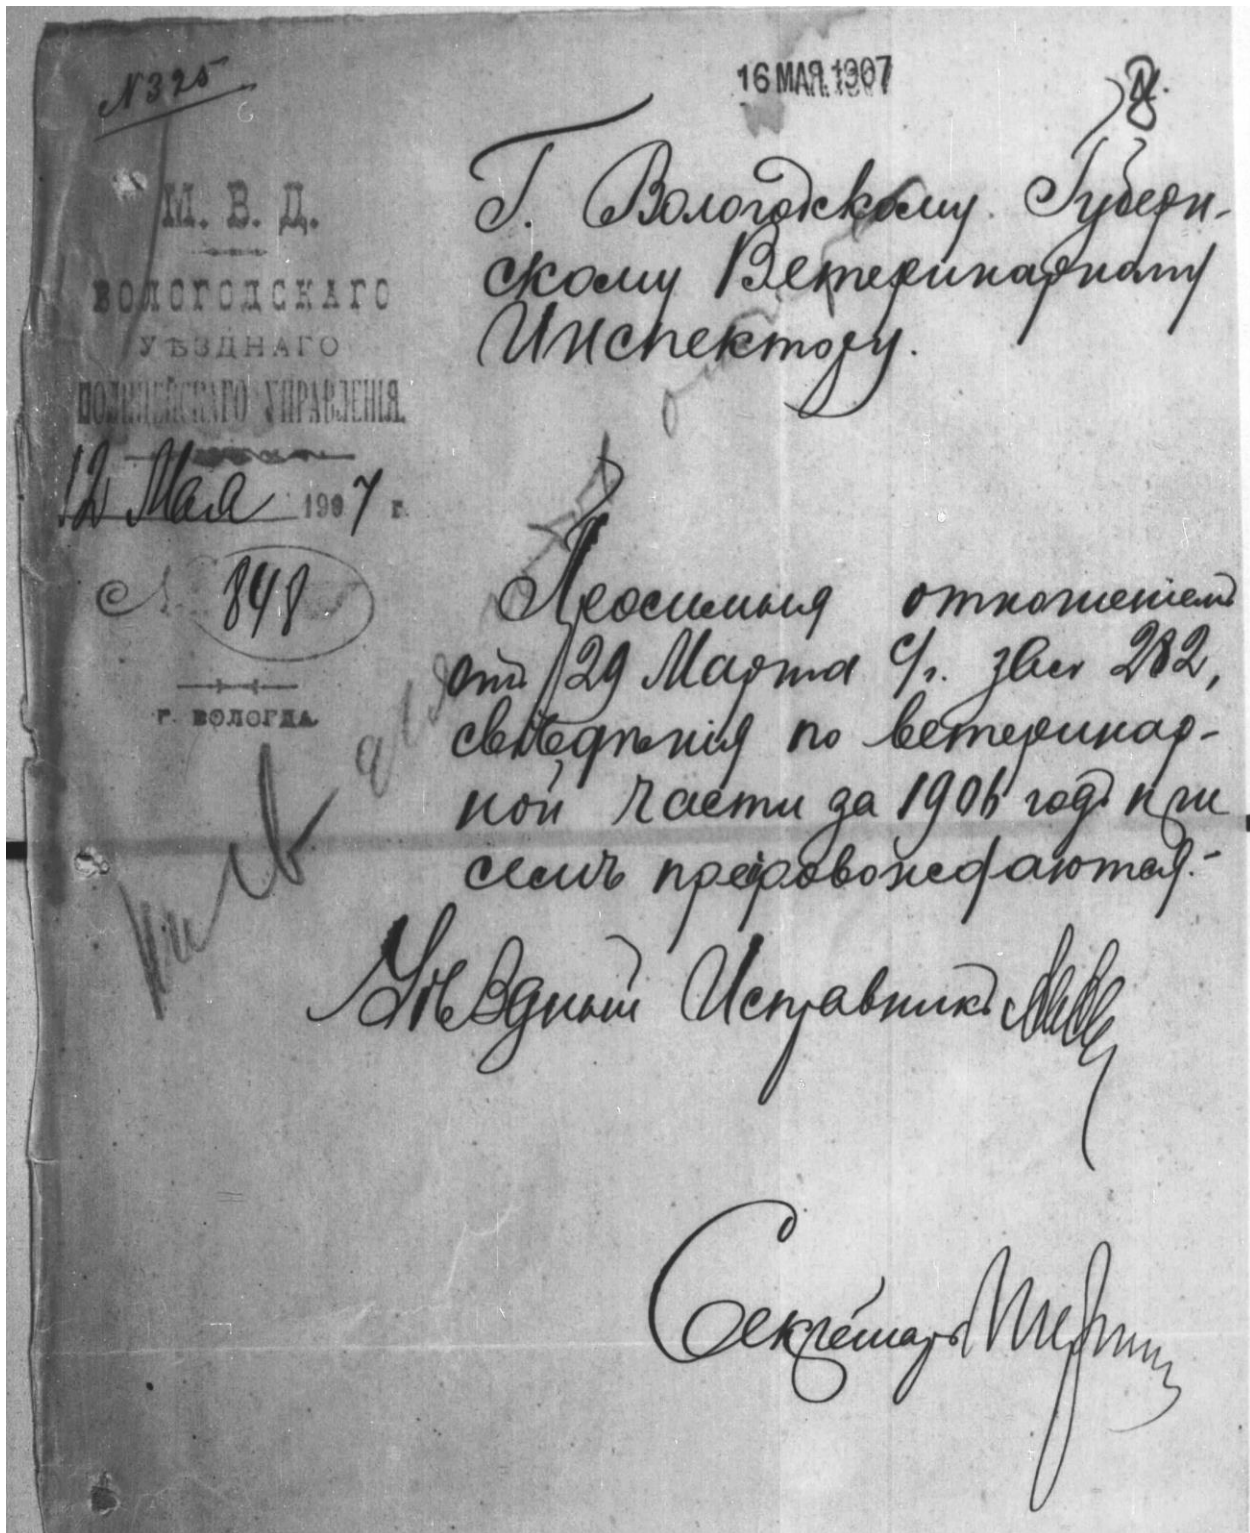 N 325
16 МАЯ. 1907
М. В. Д.
ВОЛОГОДСКАГО
УѢЗДНАГО
ПОЛИЦЕЙСКАГО УПРАВЛЕНІЯ.
12 Мая 1907 г.
№ 848
Г. ВОЛОГДА.
Г. Вологодскому Губерн-
скому Ветеринарному
Инспектору.
Просимыя отношеніемъ
отъ 29 Марта с/г. за № 282,
свѣдѣнія по ветеринар-
ной части за 1906 годъ при
семъ препровождаются.-
Уѣздный Исправникъ
Секретарь